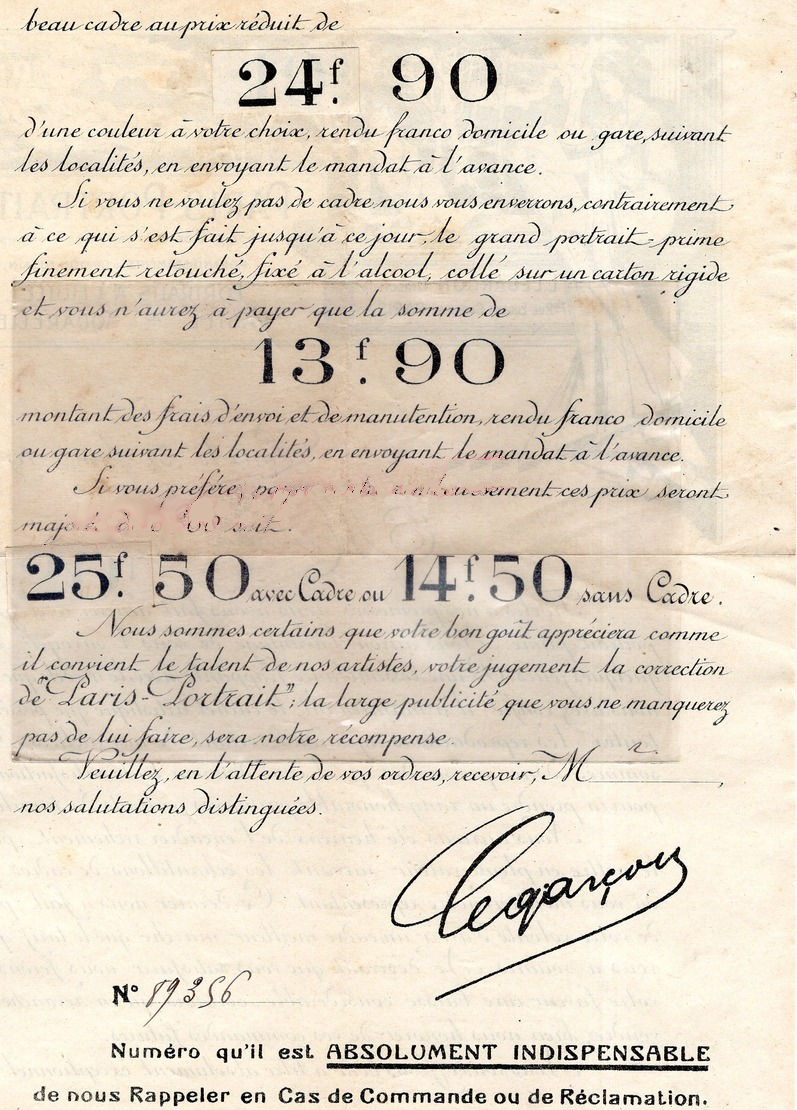 beau cadre au prix réduit de
24f. 90
d'une couleur à votre choix, rendu franco domicile ou gare, suivant
les localités, en envoyant le mandat à l'avance.
Si vous ne voulez pas de cadre nous vous enverrons, contrairement
à ce qui s'est fait jusqu'à ce jour, le grand portrait-prime
finement retouché, fixé à l'alcool, collé sur un carton rigide
et vous n'aurez à payer que la somme de
13f. 90
montant des frais d'envoi et de manutention, rendu franco domicile
ou gare suivant les localités, en envoyant le mandat à l'avance.
Si vous préfére, ces prix seront
soit.
25f. 50 avec Cadre ou 14f. 50 sans Cadre.
Nous sommes certains que votre bon goût appréciera comme
il convient le talent de nos artistes, votre jugement la correction
de "Paris-Portrait"; la large publicité que vous ne manquerez
pas de lui faire, sera notre récompense.
Veuillez, en l'attente de vos ordres, recevoir, M r.,
nos salutations distinguées.
Legarçon
N° 89356
Numéro qu'il est ABSOLUMENT INDISPENSABLE
de nous Rappeler en Cas de Commande ou de Réclamation.